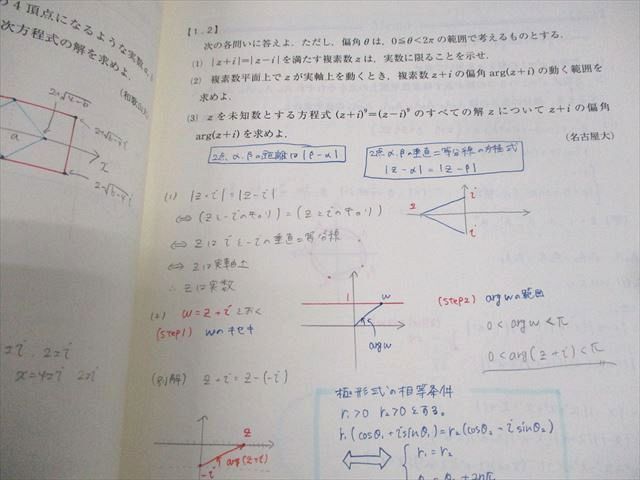 4 頂点になるような実数
次方程式の解を求めよ.
(和歌山大)
a
x
【1.2】
次の各問いに答えよ. ただし, 偏角 θ は, 0≦θ<2π の範囲で考えるものとする.
(1) |z+i|=|z−i| を満たす複素数 z は, 実数に限ることを示せ.
(2) 複素数平面上で z が実軸上を動くとき, 複素数 z+i の偏角 arg(z+i) の動く範囲を
求めよ.
(3) z を未知数とする方程式 (z+i)⁹=(z−i)⁹ のすべての解 z について z+i の偏角
arg(z+i) を求めよ.
(名古屋大)
2点 α, β の距離は |β−α|
2点 α, β の垂直二等分線の方程式
|z−α| = |z−β|
(1) |z+i| = |z−i|
⇔ (zと−iのキョリ) = (zとiのキョリ)
⇔ zは iと−iの垂直二等分線
⇔ zは実軸上
∴ zは実数
z
i
i
(2) w = z+i とおく
(step1) wのキセキ
1
w
arg w
(step2) arg wの範囲
0 < arg w < π
0 < arg(z+i) < π
x=4±i 2±i
(別解) z+i = z−(−i)
z
arg(z+i)
−i
極形式の相等条件
r₁>0 r₂>0とする。
r₁(cosθ₁+isinθ₁)=r₂(cosθ₂−isinθ₂)
r₁=r₂